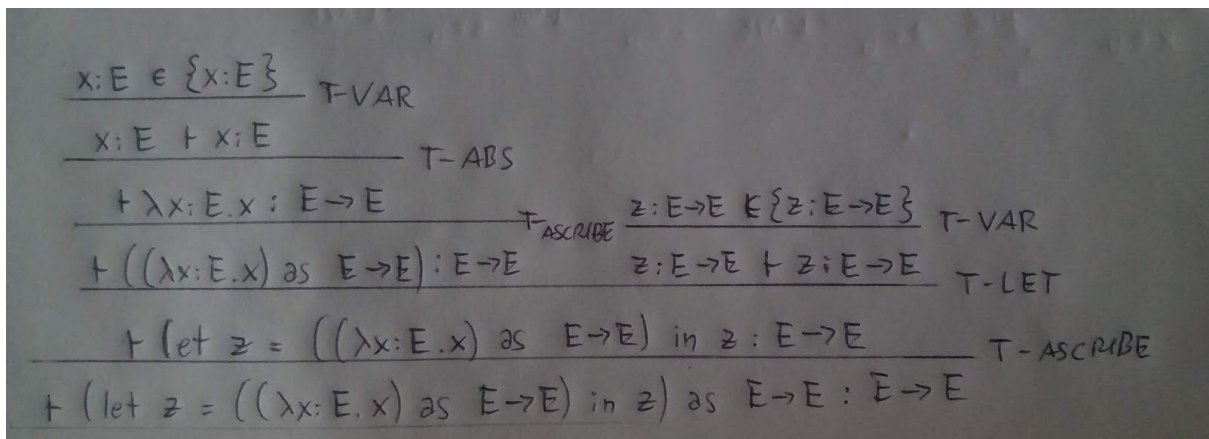 x:E ∈ {x:E} T-VAR
x:E ⊢ x:E T-ABS
⊢ λx:E.x : E→E T-ASCRIBE z:E→E ∈ {z:E→E} T-VAR
⊢ ((λx:E.x) as E→E) : E→E z:E→E ⊢ z:E→E T-LET
⊢ let z = ((λx:E.x) as E→E) in z : E→E T-ASCRIBE
⊢ (let z = ((λx:E.x) as E→E) in z) as E→E : E→E